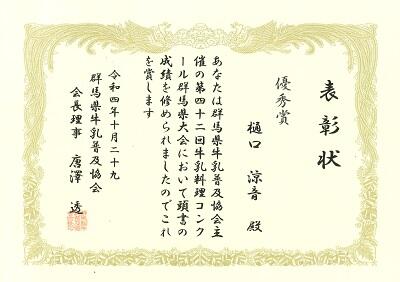 表彰状
優秀賞
樋口 涼音 殿
あなたは群馬県牛乳普及協会主
催の第四十二回牛乳料理コンク
ール群馬県大会において頭書の
成績を修められましたのでこれ
を賞します
令和四年十月二十九
群馬県牛乳普及協会
会長理事 唐澤 透